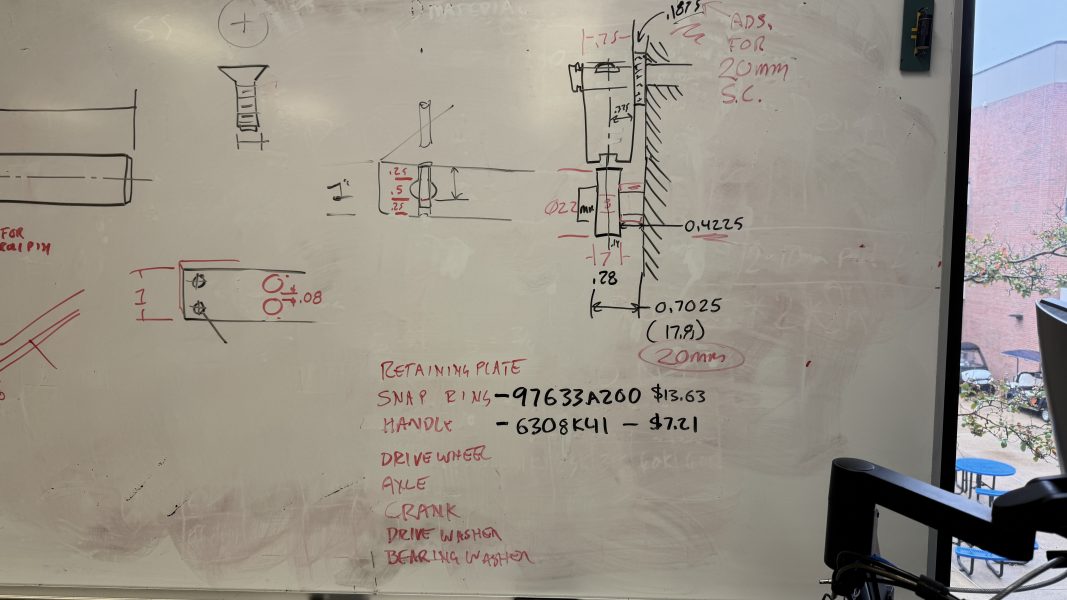 MATERIAL
.1875
ADJ.
FOR
20mm
S.C.
.75
.375
1"
.25
.5
.25
Ø22
mm
0.4225
7
.28
0.7025
(17.8)
20mm
FOR
1
.08
RETAINING PLATE
SNAP RING - 97633A200 $13.63
HANDLE - 6308K41 - $7.21
DRIVE WHEEL
AXLE
CRANK
DRIVE WASHER
BEARING WASHER